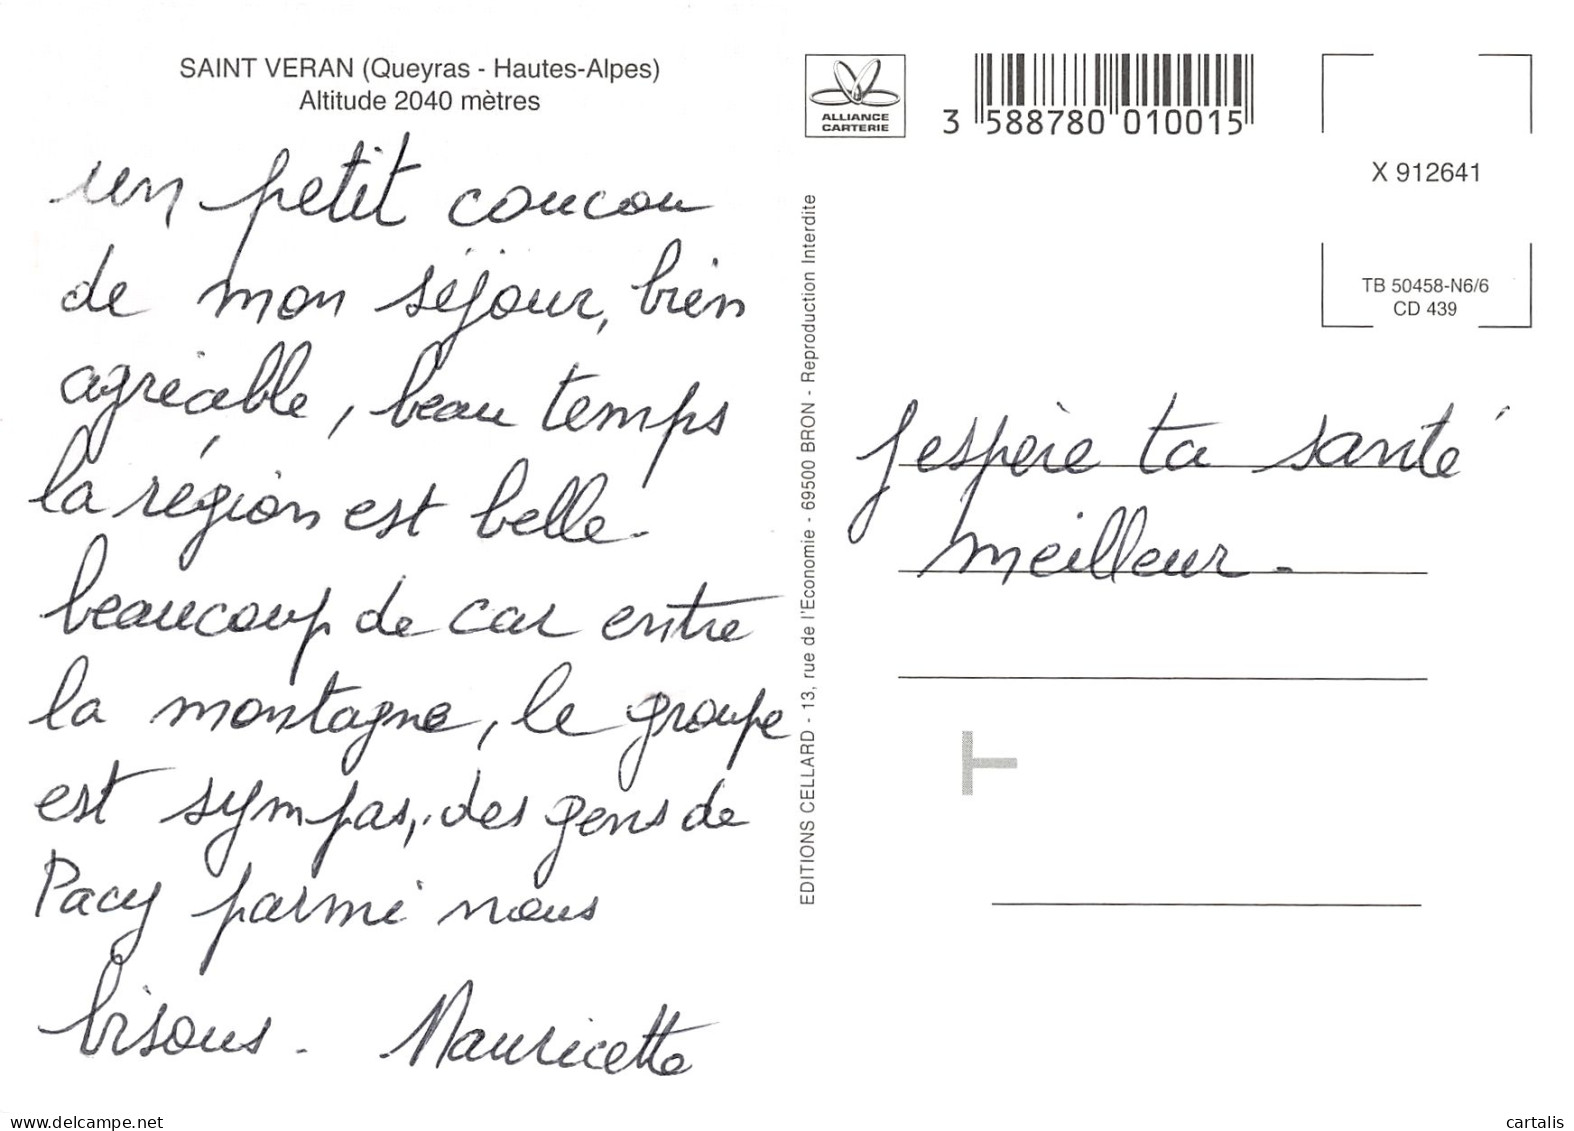 SAINT VERAN (Queyras - Hautes-Alpes)
Altitude 2040 mètres
un petit coucou
de mon séjour, bien
agréable, beau temps
la région est belle.
beaucoup de car entre
la montagne, le groupe
est sympas, des gens de
Pacy parmi nous
bisous. Mauricette
EDITIONS CELLARD - 13, rue de l'Economie - 69500 BRON - Reproduction Interdite
ALLIANCE
CARTERIE
3 588780 010015
X 912641
TB 50458-N6/6
CD 439
J'espère ta santé
meilleur.
www.delcampe.net
cartalis